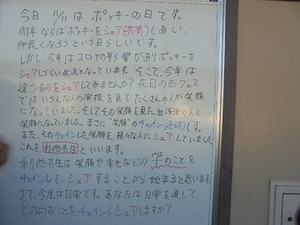 今日 11/11は ポッキーの日です。
例年ならばポッキーをシェア(共有)しあい、
仲良くなろうという日らしいです。
しかし今年はコロナの影響がありポッキーを
シェアしづらい状況となっています。そこで、今年は
違うものをシェアしてみませんか? 先日のフェス
ではいろんな人の演技を見てたくさんの人が笑顔
になっていました。そしてその笑顔を見た出演者の人も
笑顔になっていました。まさに"笑顔"のチェイン(連鎖)です。
また、そのチェインした笑顔を様々な人にシェアしていました。
これを利他共有といいます。
利他共有は笑顔や幸せなどの正のことを
チェインして、シェアすることから始まると思います。
さて、今度は日常です。あなたは日常を通して
どのようなことをチェインしシェアしますか?